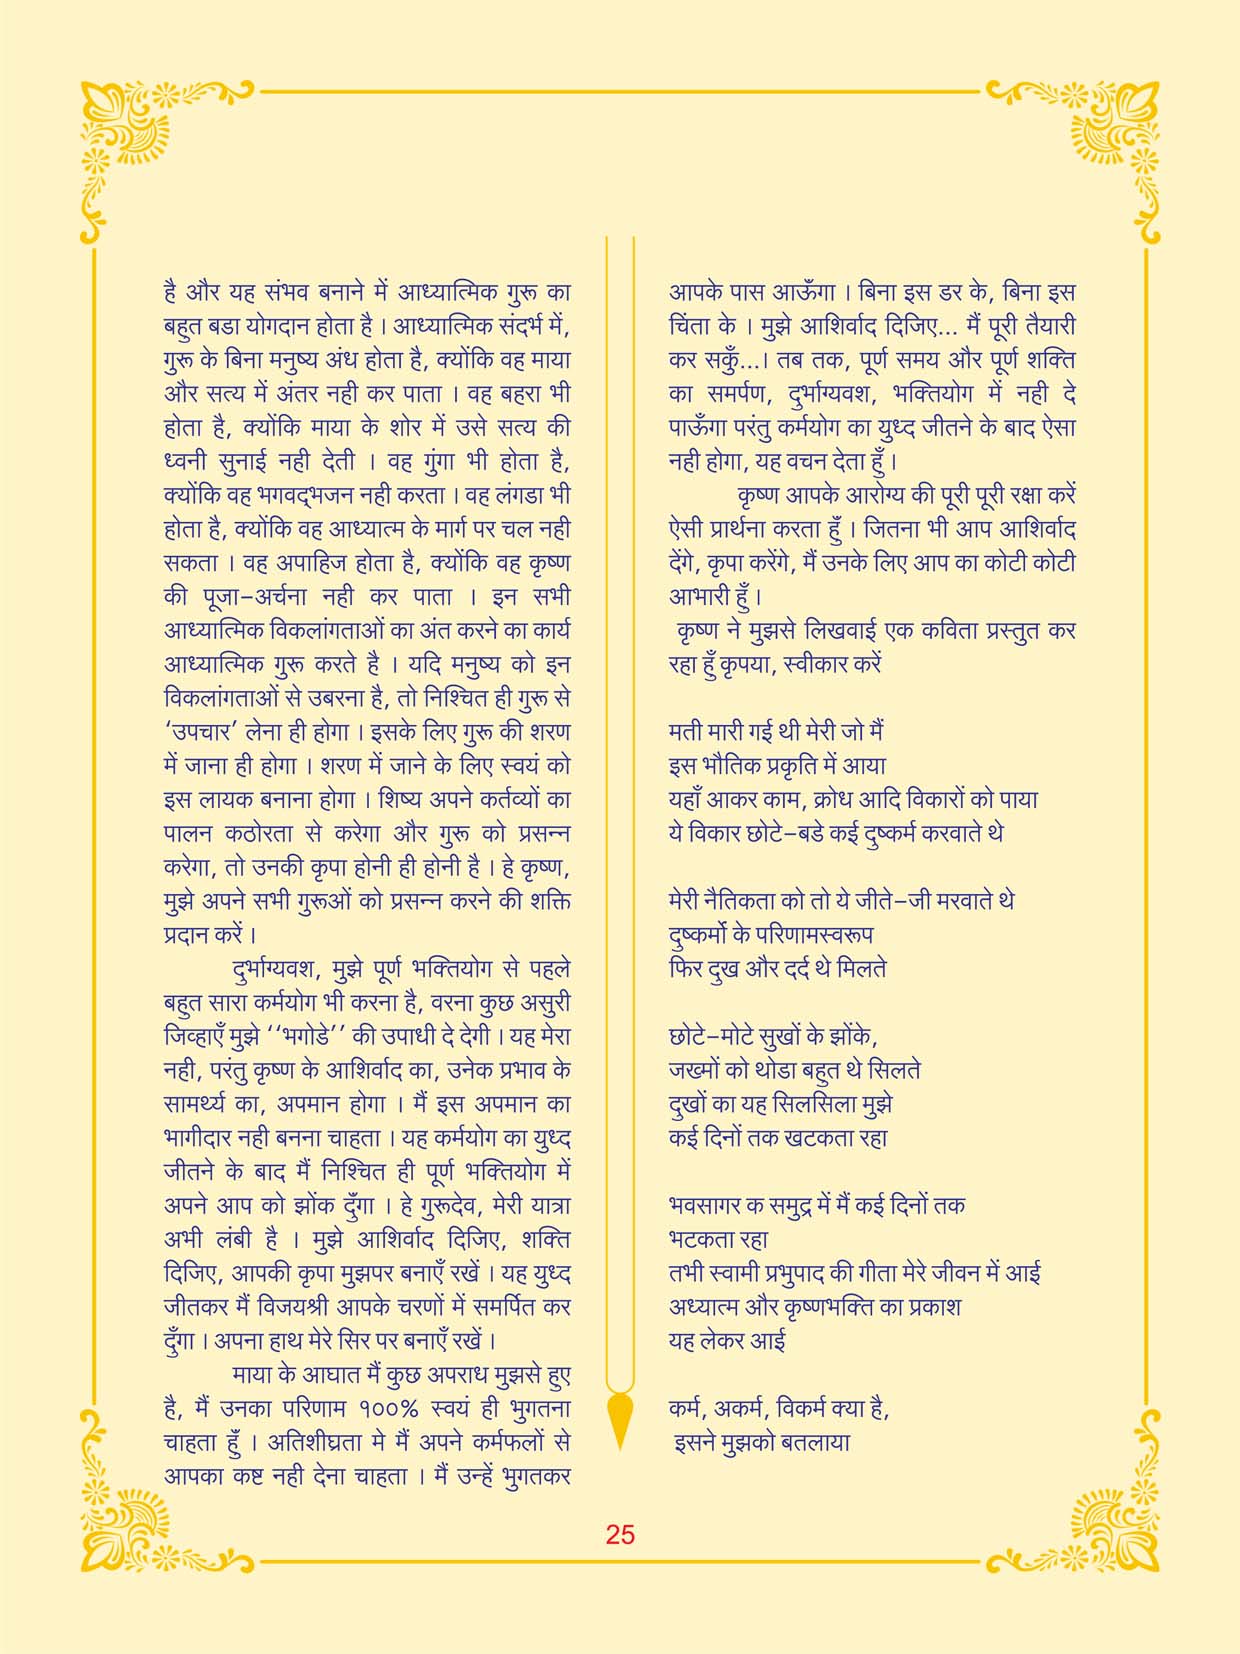 है और यह संभव बनाने में आध्यात्मिक गुरू का
बहुत बडा योगदान होता है । आध्यात्मिक संदर्भ में,
गुरू के बिना मनुष्य अंध होता है, क्योंकि वह माया
और सत्य में अंतर नही कर पाता । वह बहरा भी
होता है, क्योंकि माया के शोर में उसे सत्य की
ध्वनी सुनाई नही देती । वह गुंगा भी होता है,
क्योंकि वह भगवद्‌भजन नही करता । वह लंगडा भी
होता है, क्योंकि वह आध्यात्म के मार्ग पर चल नही
सकता । वह अपाहिज होता है, क्योंकि वह कृष्ण
की पूजा-अर्चना नही कर पाता । इन सभी
आध्यात्मिक विकलांगताओं का अंत करने का कार्य
आध्यात्मिक गुरू करते है । यदि मनुष्य को इन
विकलांगताओं से उबरना है, तो निश्चित ही गुरू से
‘उपचार’ लेना ही होगा । इसके लिए गुरू की शरण
में जाना ही होगा । शरण में जाने के लिए स्वयं को
इस लायक बनाना होगा । शिष्य अपने कर्तव्यों का
पालन कठोरता से करेगा और गुरू को प्रसन्न
करेगा, तो उनकी कृपा होनी ही होनी है । हे कृष्ण,
मुझे अपने सभी गुरूओं को प्रसन्न करने की शक्ति
प्रदान करें ।
दुर्भाग्यवश, मुझे पूर्ण भक्तियोग से पहले
बहुत सारा कर्मयोग भी करना है, वरना कुछ असुरी
जिव्हाएँ मुझे ‘‘भगोडे’’ की उपाधी दे देगी । यह मेरा
नही, परंतु कृष्ण के आशिर्वाद का, उनेक प्रभाव के
सामर्थ्य का, अपमान होगा । मैं इस अपमान का
भागीदार नही बनना चाहता । यह कर्मयोग का युध्द
जीतने के बाद मैं निश्चित ही पूर्ण भक्तियोग में
अपने आप को झोंक दुँगा । हे गुरूदेव, मेरी यात्रा
अभी लंबी है । मुझे आशिर्वाद दिजिए, शक्ति
दिजिए, आपकी कृपा मुझपर बनाएँ रखें । यह युध्द
जीतकर मैं विजयश्री आपके चरणों में समर्पित कर
दुँगा । अपना हाथ मेरे सिर पर बनाएँ रखें ।
माया के आघात मैं कुछ अपराध मुझसे हुए
है, मैं उनका परिणाम १००% स्वयं ही भुगतना
चाहता हुँ । अतिशीघ्रता मे मैं अपने कर्मफलों से
आपका कष्ट नही देना चाहता । मैं उन्हें भुगतकर
आपके पास आऊँगा । बिना इस डर के, बिना इस
चिंता के । मुझे आशिर्वाद दिजिए... मैं पूरी तैयारी
कर सकुँ...। तब तक, पूर्ण समय और पूर्ण शक्ति
का समर्पण, दुर्भाग्यवश, भक्तियोग में नही दे
पाऊँगा परंतु कर्मयोग का युध्द जीतने के बाद ऐसा
नही होगा, यह वचन देता हुँ ।
कृष्ण आपके आरोग्य की पूरी पूरी रक्षा करें
ऐसी प्रार्थना करता हुँ । जितना भी आप आशिर्वाद
देंगे, कृपा करेंगे, मैं उनके लिए आप का कोटी कोटी
आभारी हुँ ।
कृष्ण ने मुझसे लिखवाई एक कविता प्रस्तुत कर
रहा हुँ कृपया, स्वीकार करें
मती मारी गई थी मेरी जो मैं
इस भौतिक प्रकृति में आया
यहाँ आकर काम, क्रोध आदि विकारों को पाया
ये विकार छोटे-बडे कई दुष्कर्म करवाते थे
मेरी नैतिकता को तो ये जीते-जी मरवाते थे
दुष्कर्मो के परिणामस्वरूप
फिर दुख और दर्द थे मिलते
छोटे-मोटे सुखों के झोंके,
जख्मों को थोडा बहुत थे सिलते
दुखों का यह सिलसिला मुझे
कई दिनों तक खटकता रहा
भवसागर क समुद्र में मैं कई दिनों तक
भटकता रहा
तभी स्वामी प्रभुपाद की गीता मेरे जीवन में आई
अध्यात्म और कृष्णभक्ति का प्रकाश
यह लेकर आई
कर्म, अकर्म, विकर्म क्या है,
इसने मुझको बतलाया
25